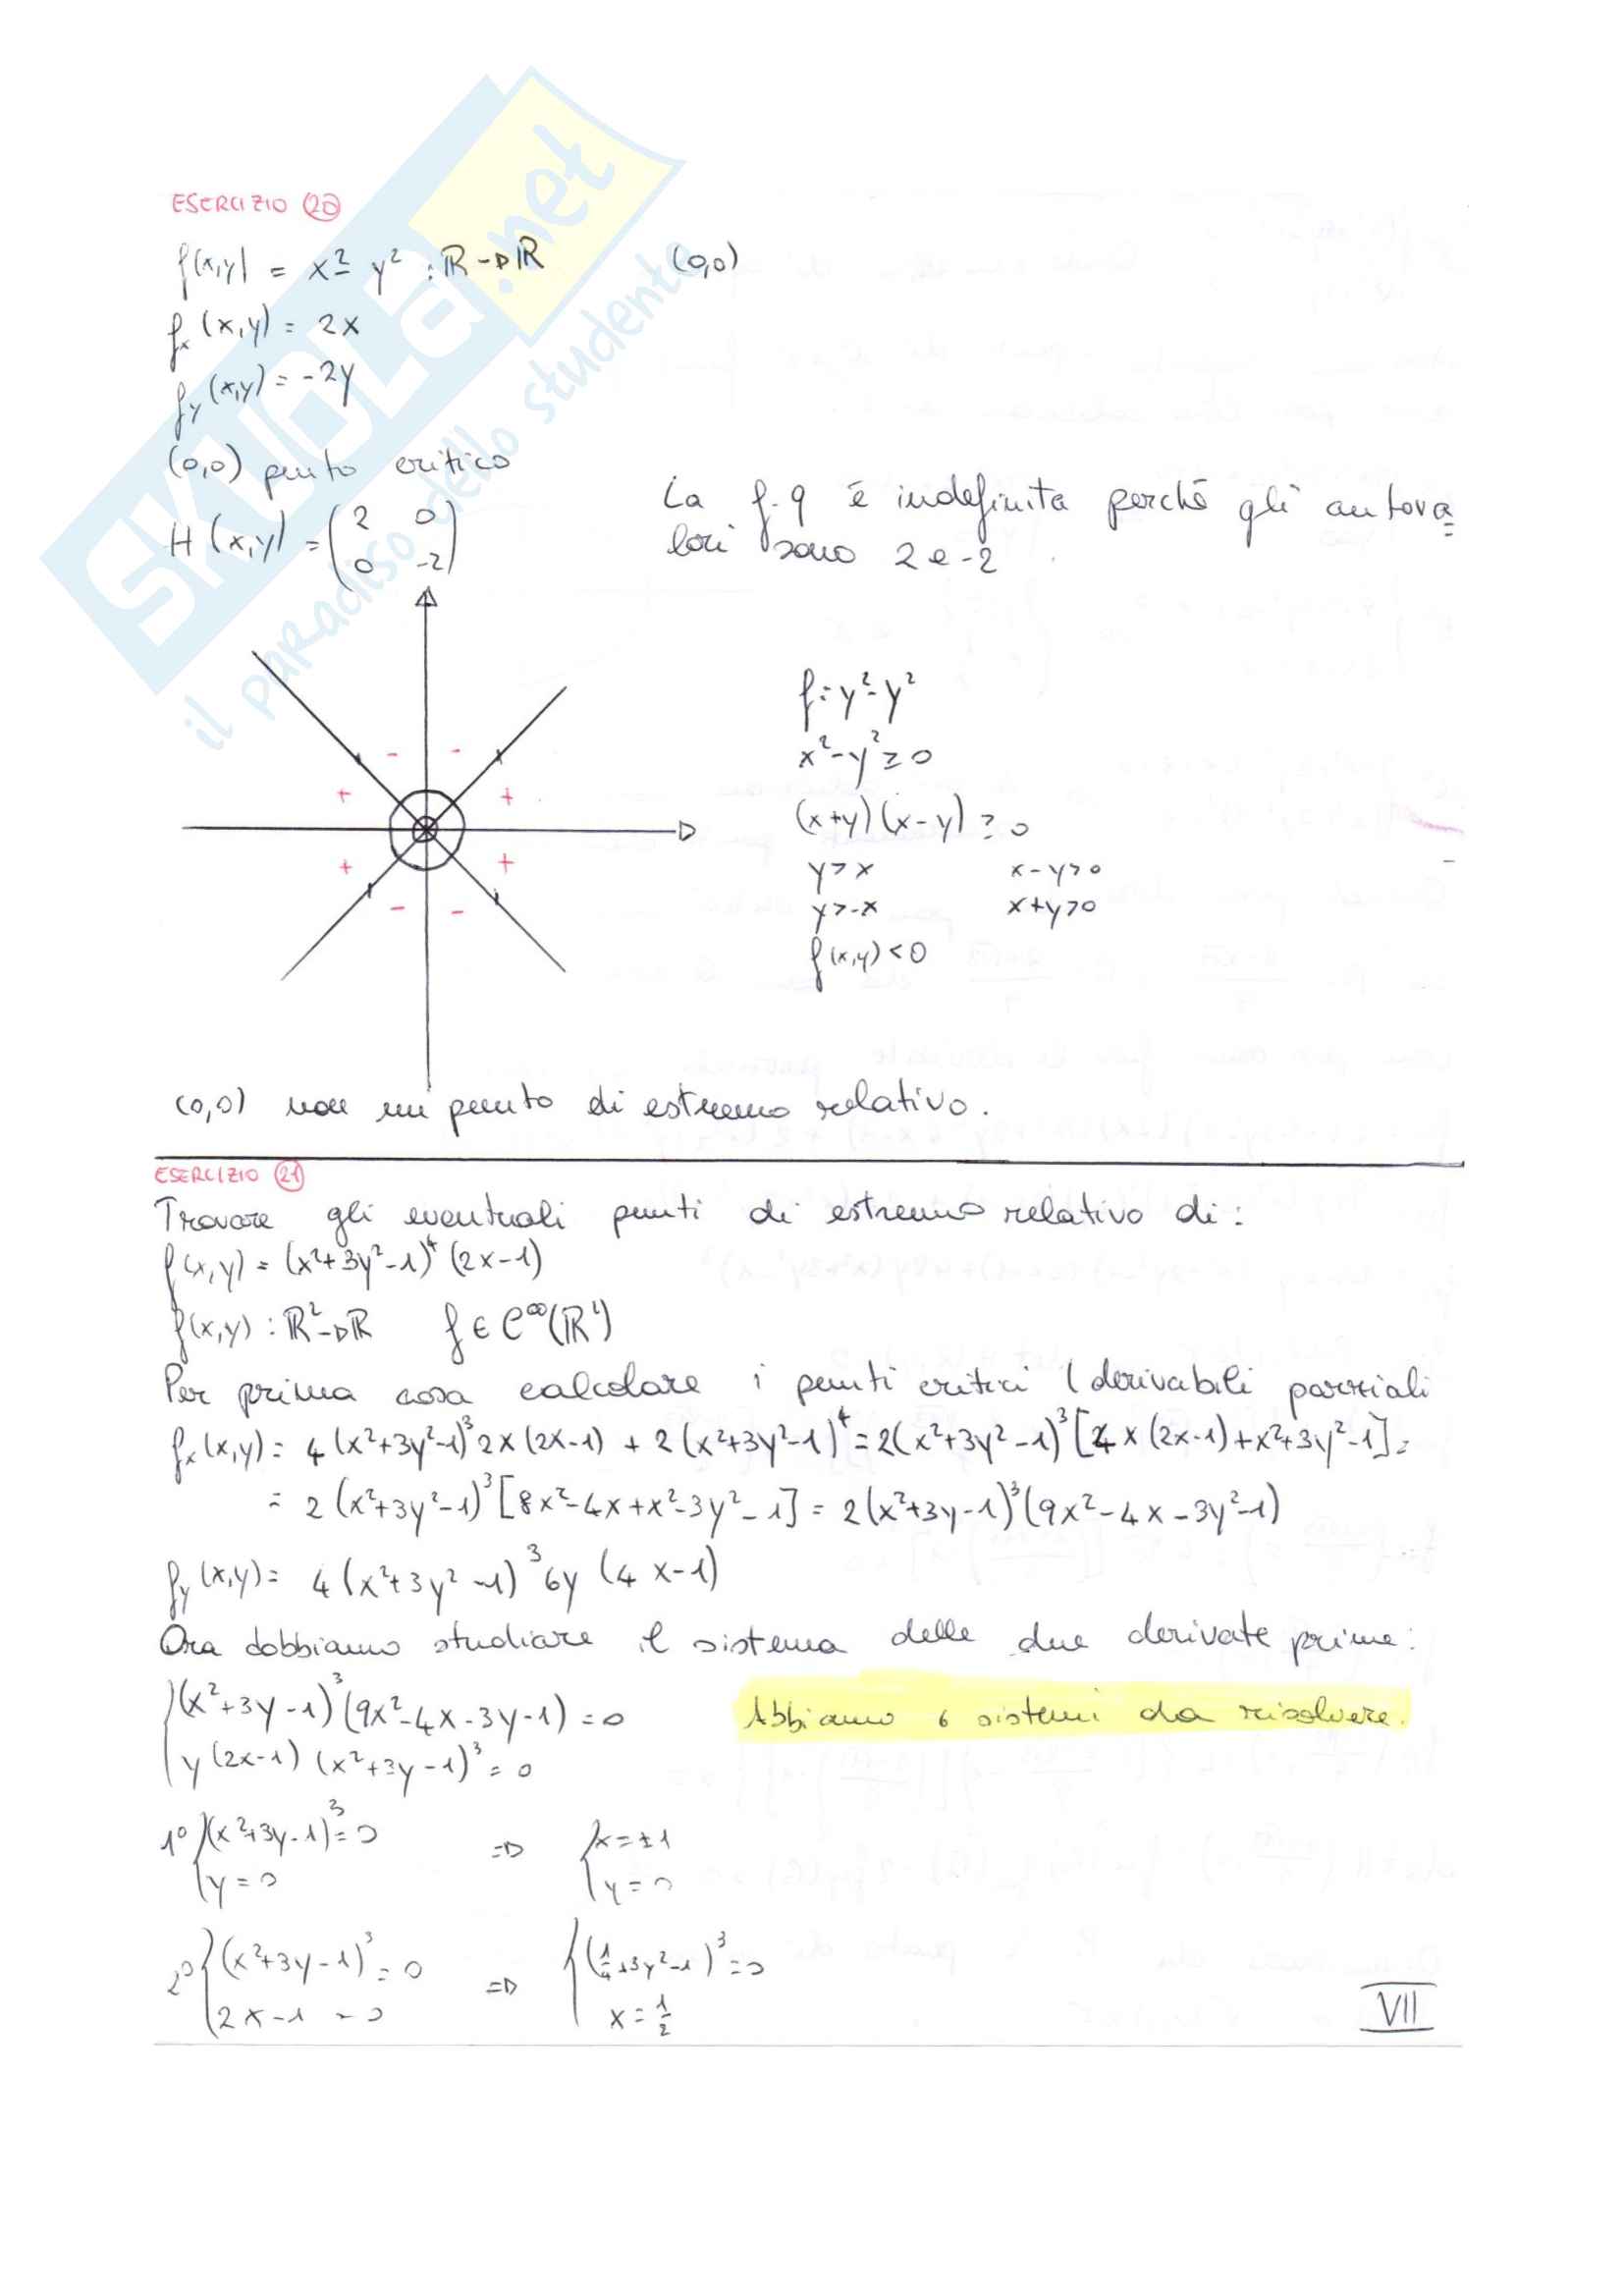 SKUOLA.net
il paradiso dello studente
ESERCIZIO 20
f(x,y) = x² - y² : R → R (0,0)
fx (x,y) = 2x
fy (x,y) = -2y
(0,0) punto critico
H (x,y) = (2 0
0 -2)
La f.q è indefinita perché gli autova=
lori sono 2 e -2
- -
+ +
+ +
- -
f = y² - y²
x² - y² ≥ 0
(x+y) (x-y) ≥ 0
y > x x-y>0
y > -x x+y>0
f(x,y) < 0
(0,0) non un punto di estremo relativo.
ESERCIZIO 21
Trovare gli eventuali punti di estremo relativo di:
f(x,y) = (x²+3y²-1)⁴ (2x-1)
f(x,y) : R² → R f ∈ C^∞(R²)
Per prima cosa calcolare i punti critici (derivabili parziali
fx (x,y) = 4 (x²+3y²-1)³ 2x (2x-1) + 2 (x²+3y²-1)⁴ = 2(x²+3y²-1)³ [4x (2x-1) + x²+3y²-1] =
= 2 (x²+3y²-1)³ [8x²-4x+x²-3y²-1] = 2(x²+3y-1)³ (9x²-4x-3y²-1)
fy (x,y) = 4 (x²+3y²-1)³ 6y (4x-1)
Ora dobbiamo studiare il sistema delle due derivate prime:
{(x²+3y-1)³ (9x²-4x-3y-1) = 0 Abbiamo 6 sistemi da risolvere.
y (2x-1) (x²+3y-1)³ = 0
1° {(x²+3y-1)³ = 0 => {x = ±1
y = 0 y = 0
2° {(x²+3y-1)³ = 0 => {(1/4+3y²-1)³ = 0
2x-1 = 0 x = 1/2
VII